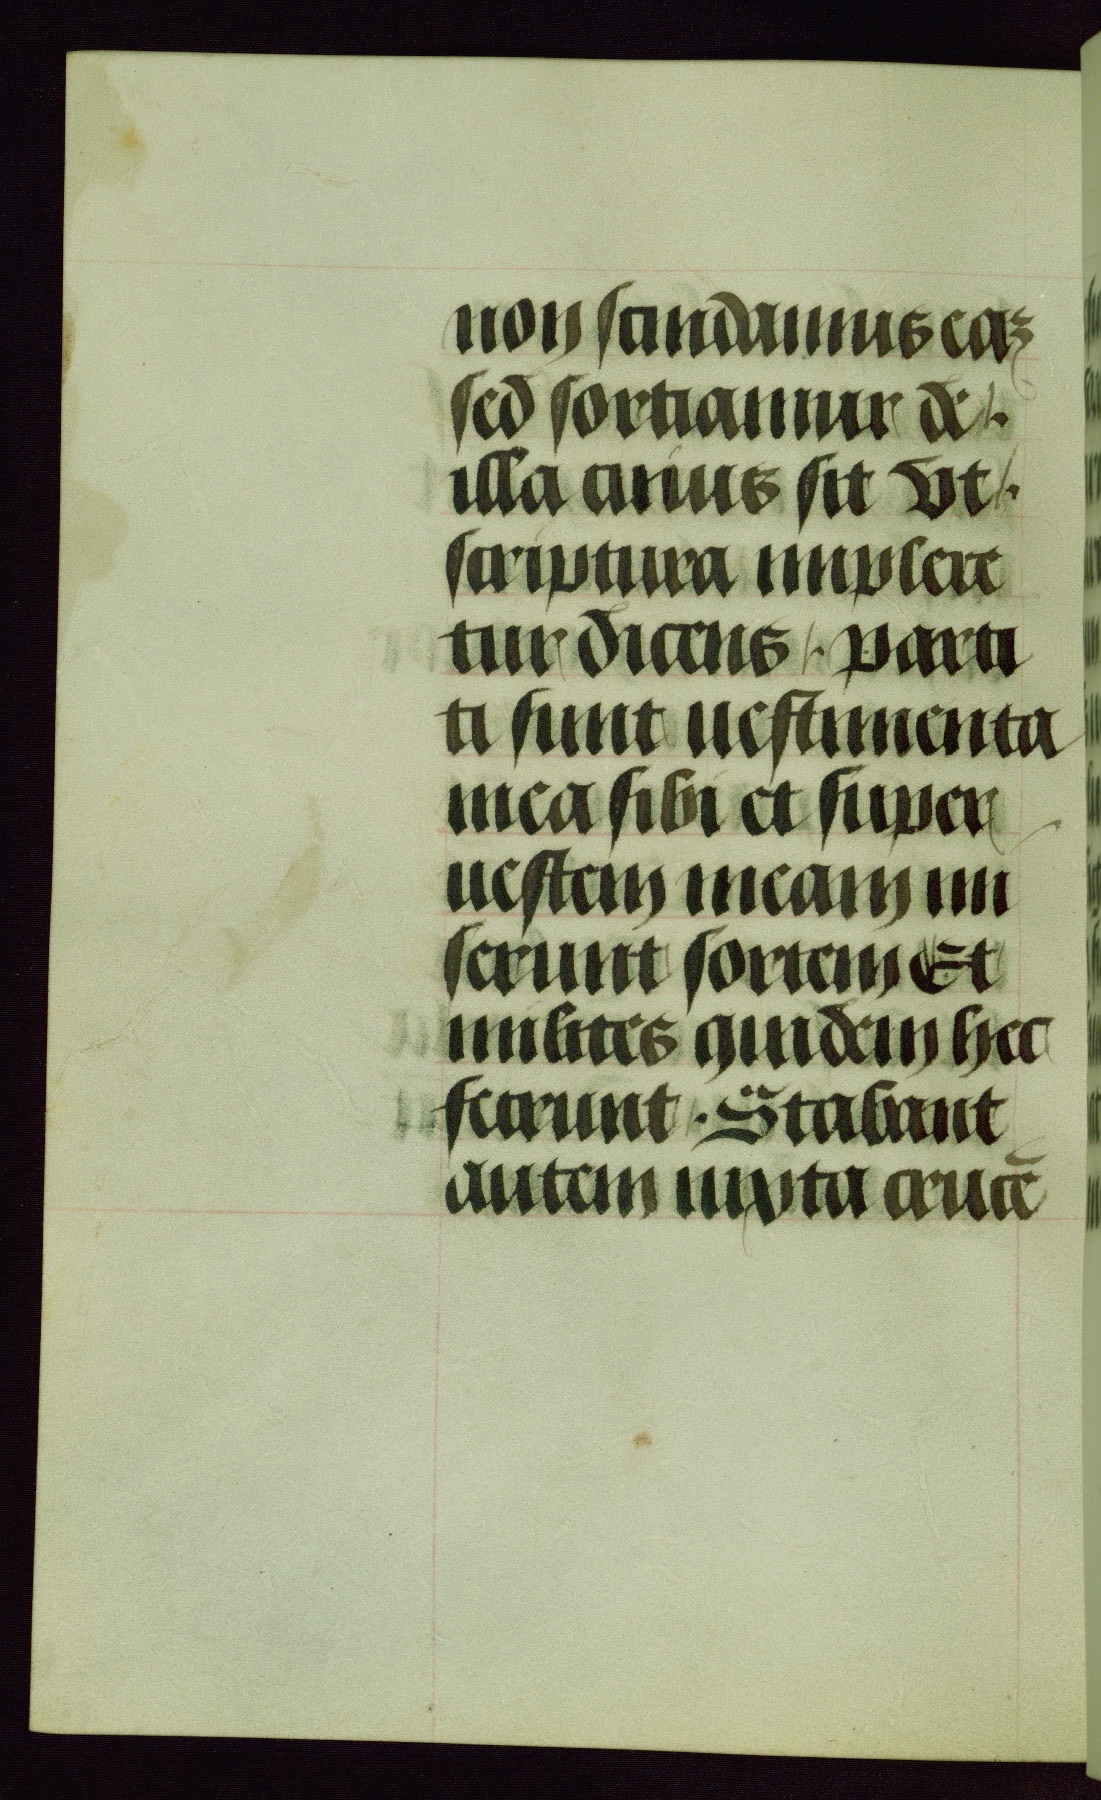 non scindamus eaʒ
sed sortiamur de /.
illa cuius sit Vt /.
scriptura implere
tur dicens /. parti
ti sunt uestimenta
mea sibi et super
uestem meam mi
serunt sortem Et
milites quidem hec
fecerunt . Stabant
autem iuxta crucē